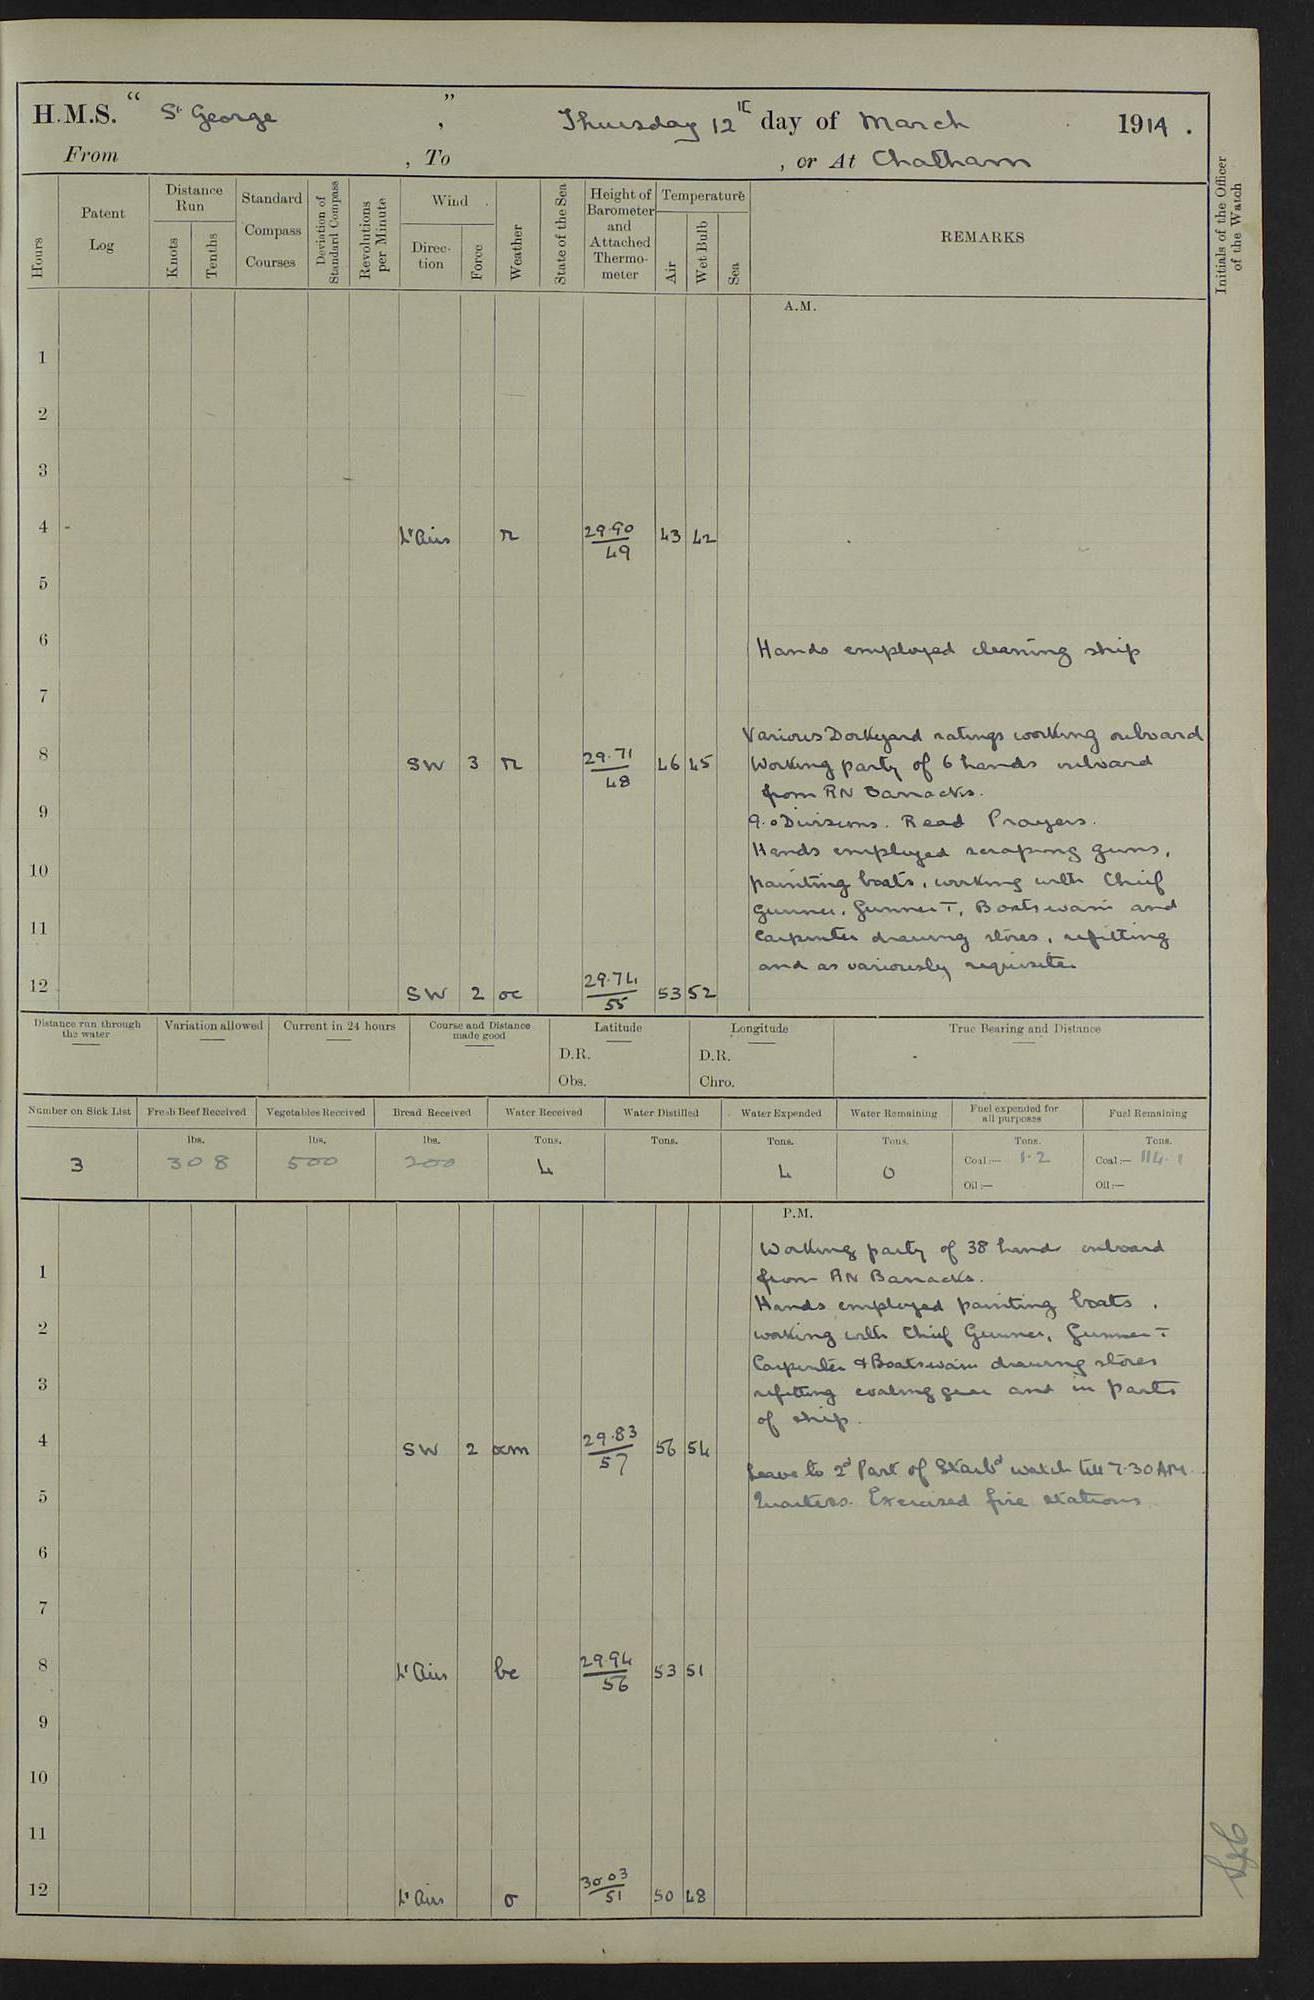 H.M.S. “ St George ” , Thursday 12th day of March 1914 .
From , To , or At Chatham
Hours
Patent Log
Distance Run
Knots
Tenths
Standard Compass Courses
Deviation of Standard Compass
Revolutions per Minute
Wind
Direction
Force
Weather
State of the Sea
Height of Barometer and Attached Thermometer
Temperature
Air
Wet Bulb
Sea
REMARKS
Initials of the Officer of the Watch
A.M.
1
2
3
4 Lt Airs r 29.90 49 43 42
5
6 Hands employed cleaning ship
7
Various Dockyard ratings working onboard
8 SW 3 r 29.71 48 46 45 Working party of 6 hands onboard
from RN Barracks.
9 9.0 Divisions. Read Prayers.
Hands employed scraping guns,
10 painting boats, working with Chief
Gunner, Gunner T, Boatswain and
11 Carpenter drawing stores, refitting
and as variously requisite
12 SW 2 oc 29.74 55 53 52
Distance run through the water
Variation allowed
Current in 24 hours
Course and Distance made good
Latitude
D.R.
Obs.
Longitude
D.R.
Chro.
True Bearing and Distance
Number on Sick List
Fresh Beef Received
Vegetables Received
Bread Received
Water Received
Water Distilled
Water Expended
Water Remaining
Fuel expended for all purposes
Fuel Remaining
lbs. lbs. lbs. Tons. Tons. Tons. Tons. Tons. Tons.
3 308 500 200 4 4 0 Coal:— 1.2 Coal:— 114.1
Oil:— Oil:—
P.M.
Working party of 38 hands onboard
1 from RN Barracks.
Hands employed painting boats,
2 working with Chief Gunner, Gunner T
Carpenter & Boatswain drawing stores
3 refitting coaling gear and in parts
of ship.
4 SW 2 om 29.83 57 56 54
Leave to 2d Part of Starbd watch till 7.30 AM.
5 Quarters. Exercised fire stations
6
7
8 Lt Airs bc 29.94 56 53 51
9
10
11
12 Lt Airs o 30.03 51 50 48